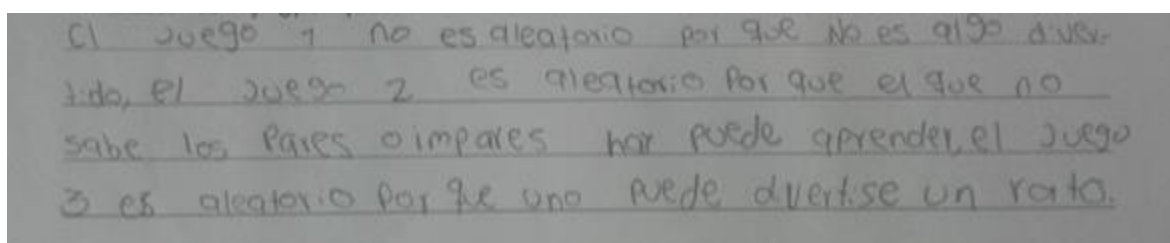 El Juego 1 no es aleatorio por que No es algo diver-
tido, el Juego 2 es aleatorio Por que el que no
sabe los Pares o impares hay puede aprender, el Juego
3 es aleatorio Por que uno puede divertise un rato.